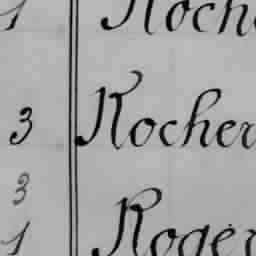 1 Roche
3 Rocher
3
1 Roger